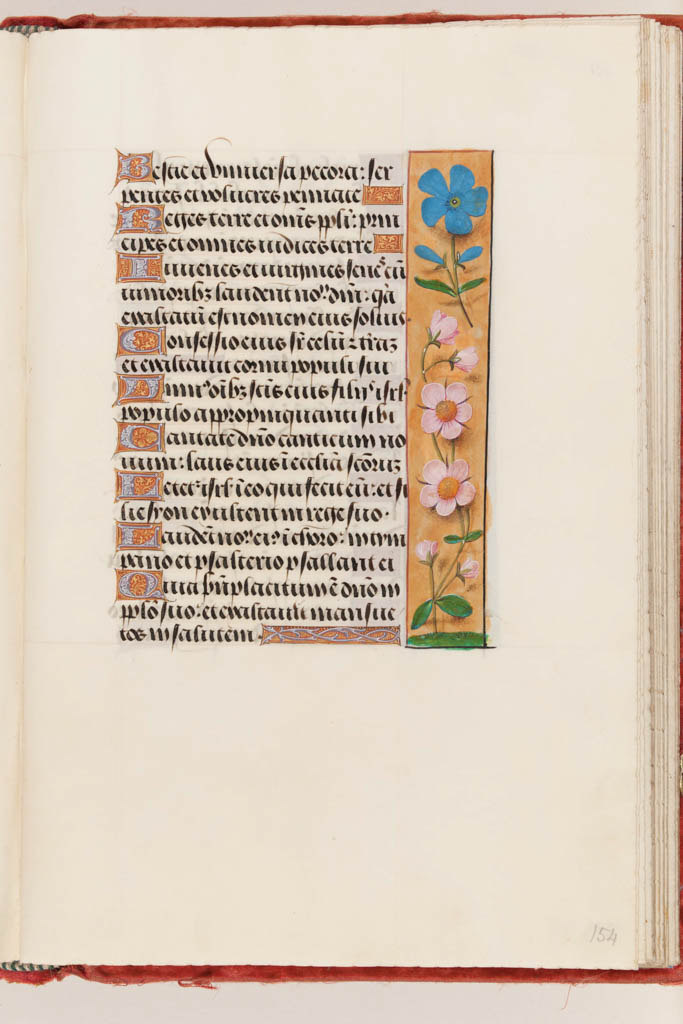 Bestie et vniuersa pecora: ser
pentes et volucres pennate
Reges terre et om̄s pp̄li: prin
cipes et omnes iudices terre
Iuuenes et uirgines sene⁹ cū
iunioribꝫ laudent no⁹ dn̄i: q̄a
exaltatū est nomen eius solius
Confessio eius sr̄ celū ⁊ trāꝫ
et exaltauit cornu populi sui
Himn⁹ oībꝫ sc̄is eius filijs isrl̄
populo appropinquanti sibi
Cantate dn̄o canticum no
uum: laus eius ī ecclīa sc̄oruꝫ
Letet⁹ isrl̄ ī eo qui fecit eū: et fi
lie syon exultent in rege suo.
Laudēt no⁹ ei⁹ ī choro: in tym
pano et psalterio psallant ei
Quia bn̄placitum ē dn̄o in
pp̄lo suo: et exaltauit mansue
tos in salutem.
154